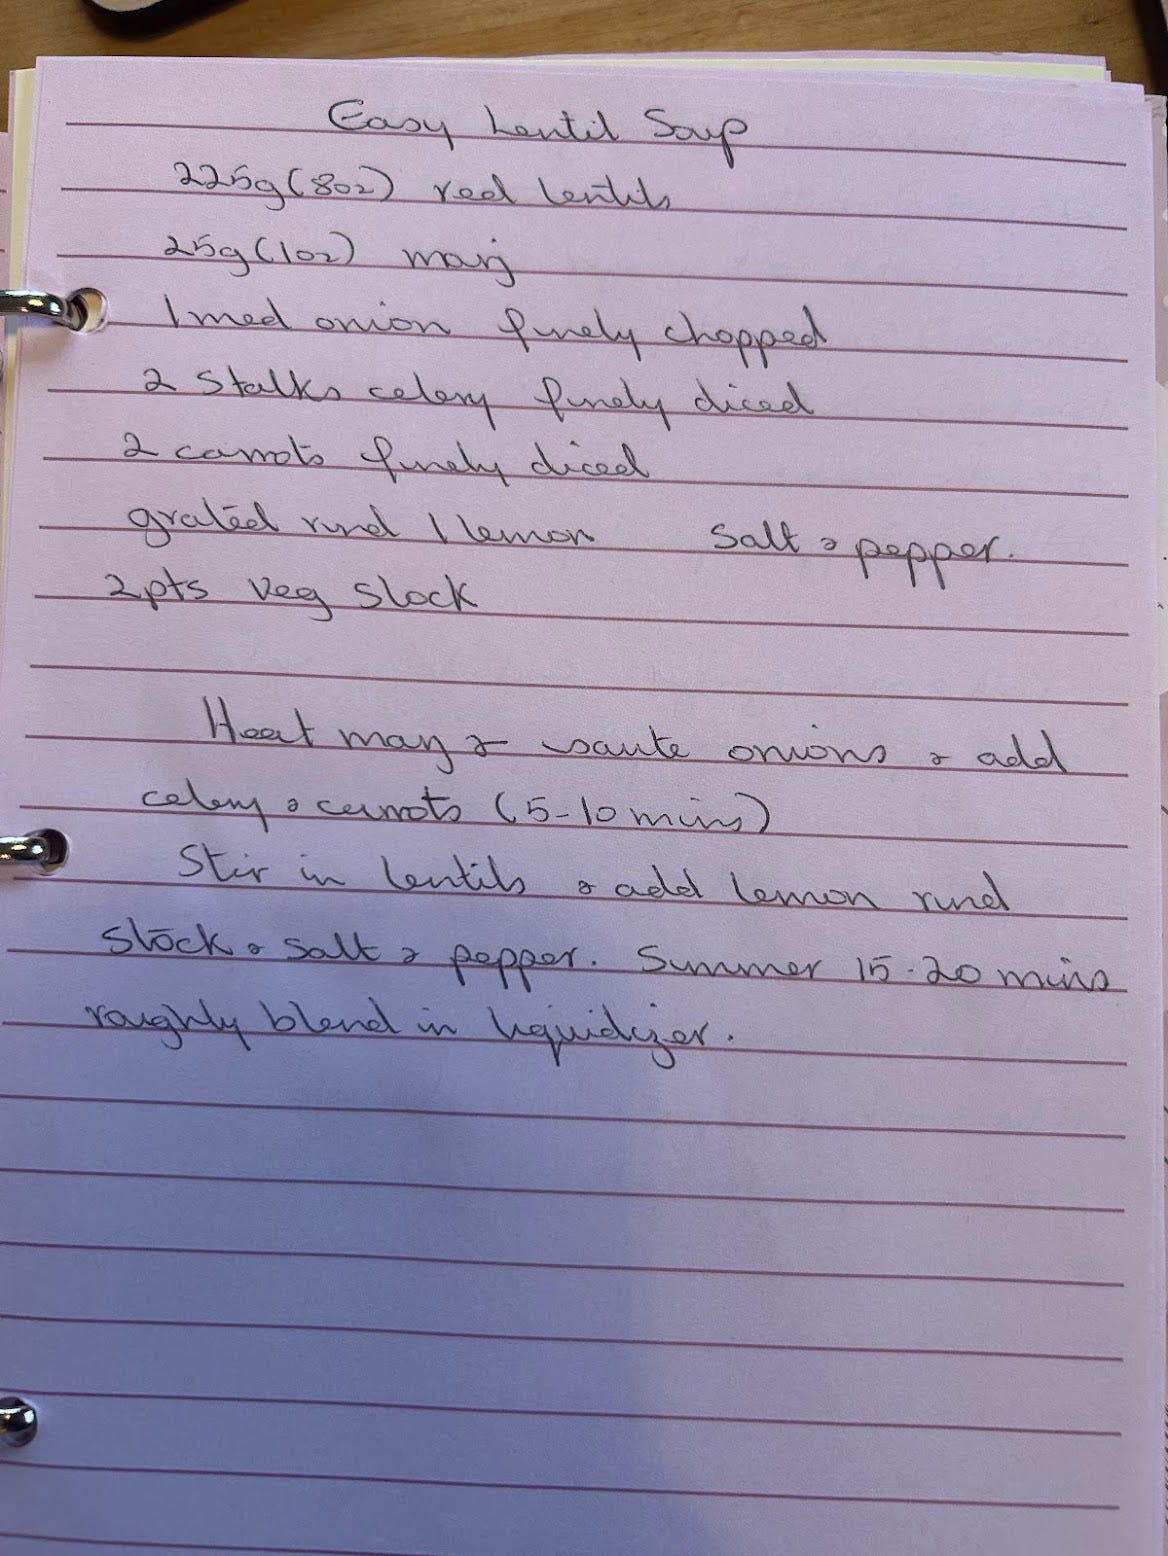 Easy Lentil Soup
225g (8oz) red lentils
25g (1oz) marj
1 med onion finely chopped
2 Stalks celery finely diced
2 carrots finely diced
grated rind 1 lemon Salt & pepper.
2pts Veg Stock
Heat marj & saute onions & add
celery & carrots (5-10 mins)
Stir in lentils & add lemon rind
Stock & Salt & pepper. Simmer 15-20 mins
roughly blend in liquidizer.